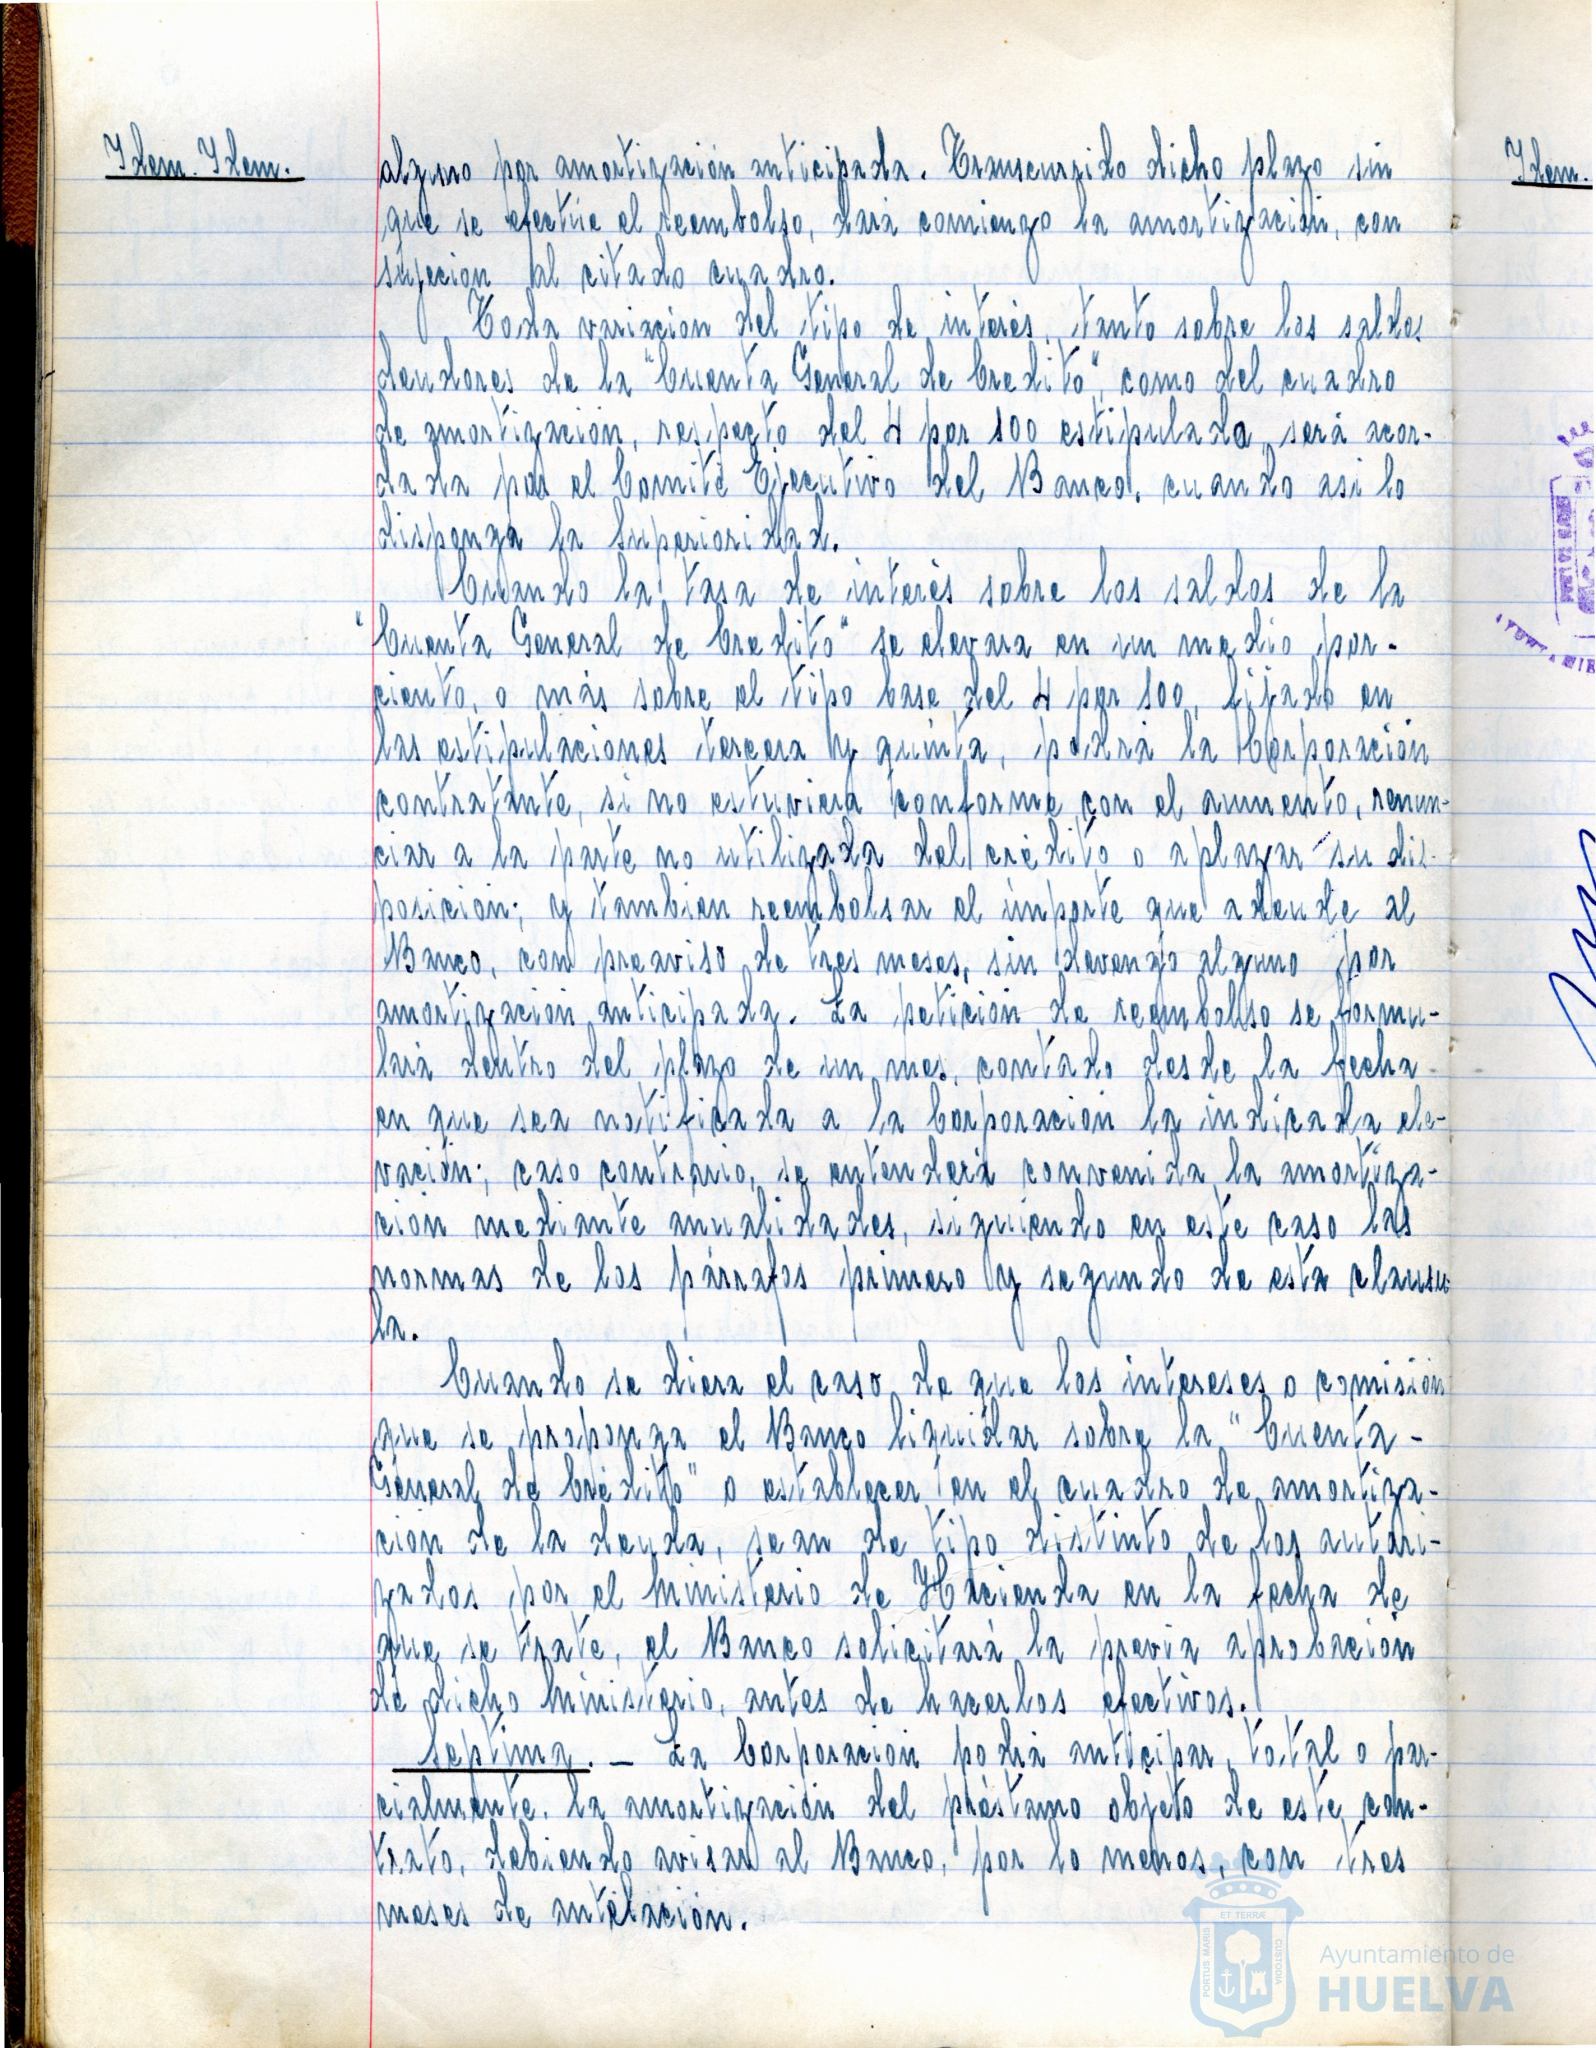 Idem. Idem.
alguno por amortización anticipada. Transcurrido dicho plazo sin
que se efectúe el reembolso, dará comienzo la amortización, con
sujeción al citado cuadro.
Toda variación del tipo de interés, tanto sobre los saldos
deudores de la "Cuenta General de Crédito", como del cuadro
de amortización, respecto del 4 por 100 estipulado, será acor-
dada por el Comité Ejecutivo del Banco, cuando así lo
disponga la Superioridad.
Cuando la tasa de interés sobre los saldos de la
"Cuenta General de Credito" se elevara en un medio por-
ciento, o más sobre el tipo base del 4 por 100, fijado en
las estipulaciones tercera y quinta, podrá la Corporación
contratante, si no estuviera conforme con el aumento, renun-
ciar a la parte no utilizada del crédito o aplazar su dis-
posición; y tambien reembolsar el importe que adeude al
Banco, con preaviso de tres meses, sin devengo alguno por
amortización anticipada. La petición de reembolso se formu-
lará dentro del plazo de un mes, contado desde la fecha
en que sea notificada a la Corporación la indicada ele-
vación; caso contrario, se entenderá convenida la amortiza-
ción mediante anualidades, siguiendo en este caso las
normas de los párrafos primero y segundo de esta clausu-
la.
Cuando se diera el caso de que los intereses o comisión
que se proponga el Banco liquidar sobre la "Cuenta -
General de Crédito" o establecer en el cuadro de amortiza-
ción de la deuda, sean de tipo distinto de los autori-
zados por el Ministerio de Hacienda en la fecha de
que se trate, el Banco solicitará la previa aprobación
de dicho Ministerio, antes de hacerlos efectivos.
Septima. - La Corporación podrá anticipar, total o par-
cialmente, la amortización del préstamo objeto de este con-
trato, debiendo avisar al Banco, por lo menos, con tres
meses de antelación.
Idem.
ET TERRÆ
PORTUS MARIS
CUSTODIA
Ayuntamiento de
HUELVA